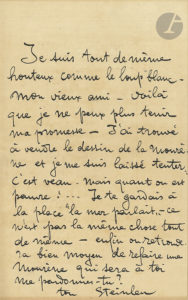 Je suis tout de même
honteux comme le loup blanc.
mon vieux ami – voilà
que je ne peux plus tenir
ma promesse – J'ai trouvé
à vendre le dessin de la
et je me suis laissé tenter.
C'est veau. mais quand on est
pauvre !... Je te gardais à
la place la mer parlait. – ce
n'est pas la même chose tout
de même – enfin on
a bien moyen de refaire une
qui sera à toi
me pardonnes-tu ?
ton Steinlen